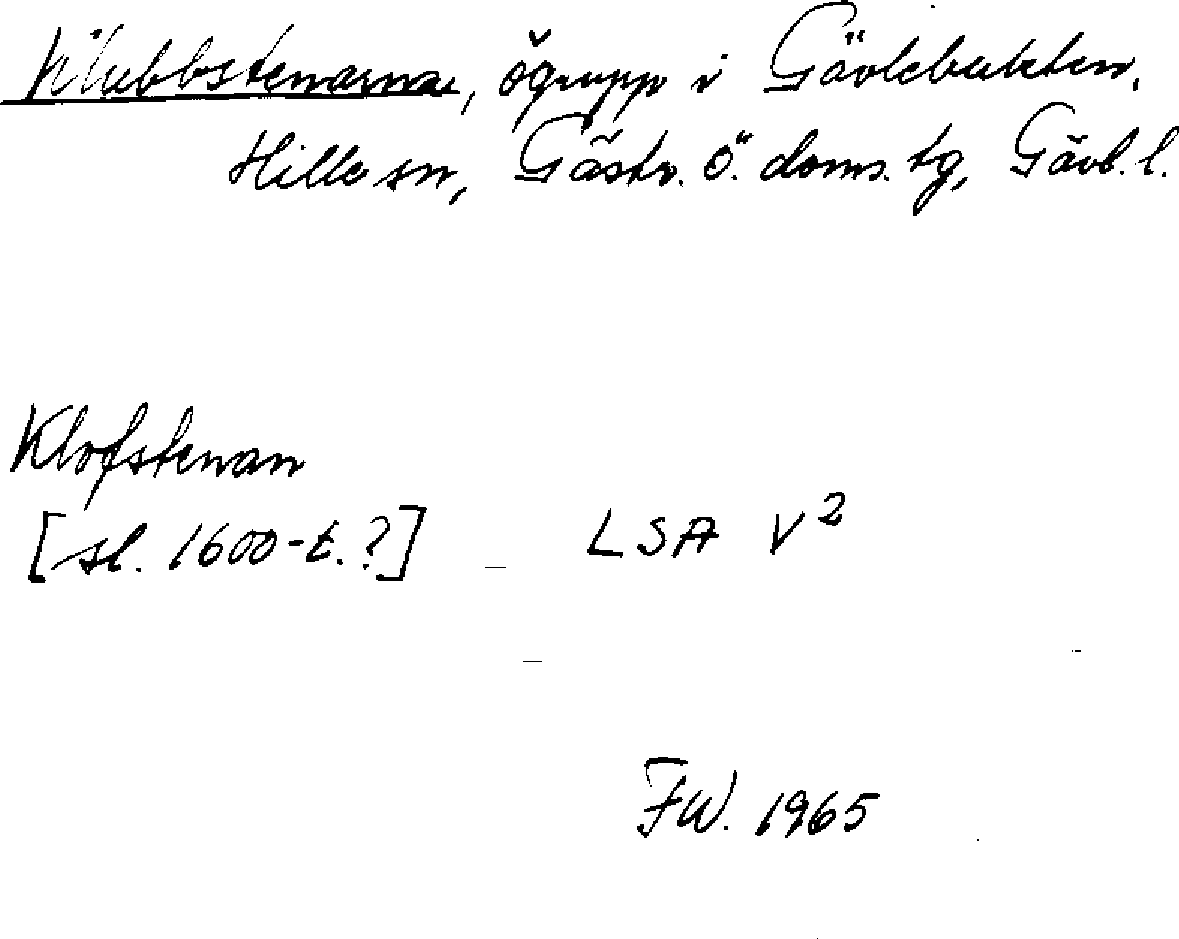 Klubbstenarna, ögrupp i Gävlebukten,
Hille sn, Gästr. ö. doms. tg, Gävl. l.
Klofstenan
[sl. 1600-t.?] – LSA V²
FW. 1965